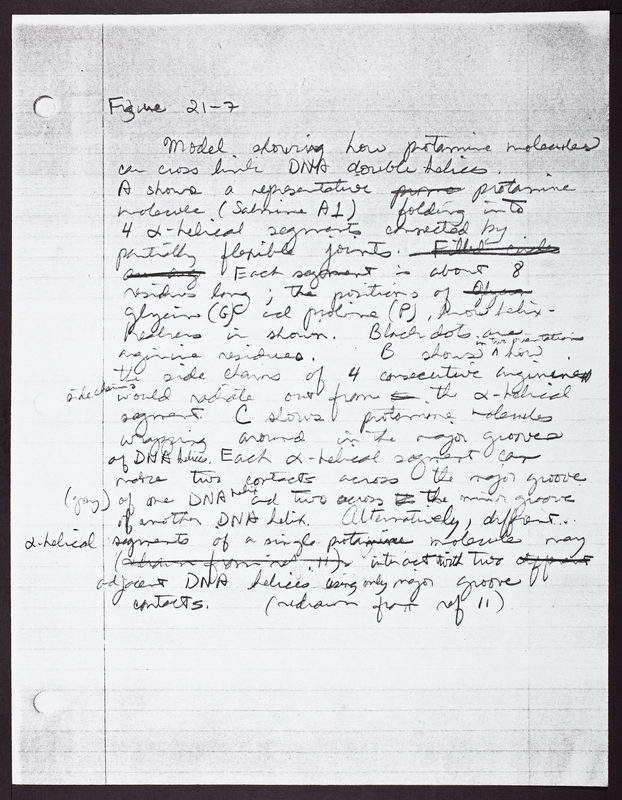 Figure 21-7
Model showing how protamine molecules
can cross link DNA double helices.
A shows a representative protamine
molecule (Salmine A1) folding into
4 α-helical segments connected by
partially flexible joints. Filled circles
Each segment is about 8
residues long; the positions of
glycine (G) and proline (P), know helix-
breakers is shown. Black dots are
arginine residues. B shows in two orientations how
the side chains of 4 consecutive arginines
side chains would radiate out from the α-helical
segment. C shows protamine molecules
wrapping around in the major grooves
of DNA helices. Each α-helical segment can
make two contacts across the major groove
(gray) of one DNA helix and two across the minor groove
of another DNA helix. Alternatively, different
α-helical segments of a single protamine molecule may
(drawn from ref. 11). interact with two
adjacent DNA helices using only major groove
contacts. (redrawn from ref 11)